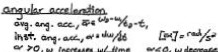 angular acceleration
avg. ang. acc., ᾱ = ω₂-ω₁/t₂-t₁
inst. ang. acc., α = dω/dt [α] = rad/s²
α > 0, ω increases w/ time α < 0, ω dec